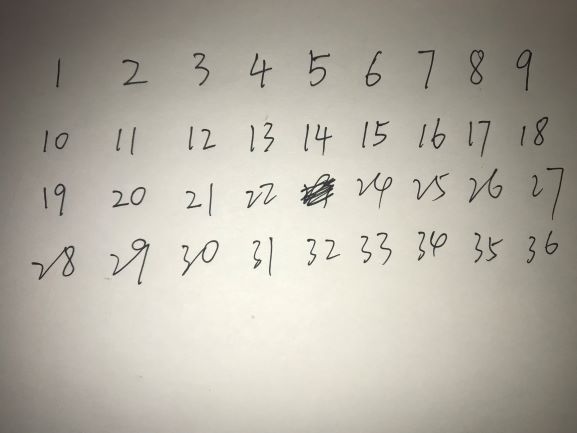 1 2 3 4 5 6 7 8 9
10 11 12 13 14 15 16 17 18
19 20 21 22 24 25 26 27
28 29 30 31 32 33 34 35 36